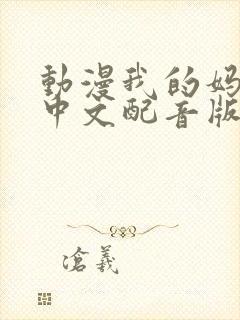 動漫我的妈
中文配音版
滄義